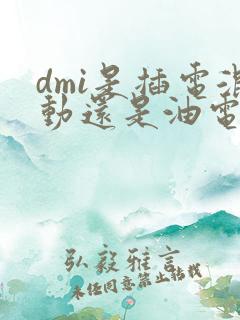 dmi是插電混
動還是油電
弘毅雅言
未经同意禁止搭载